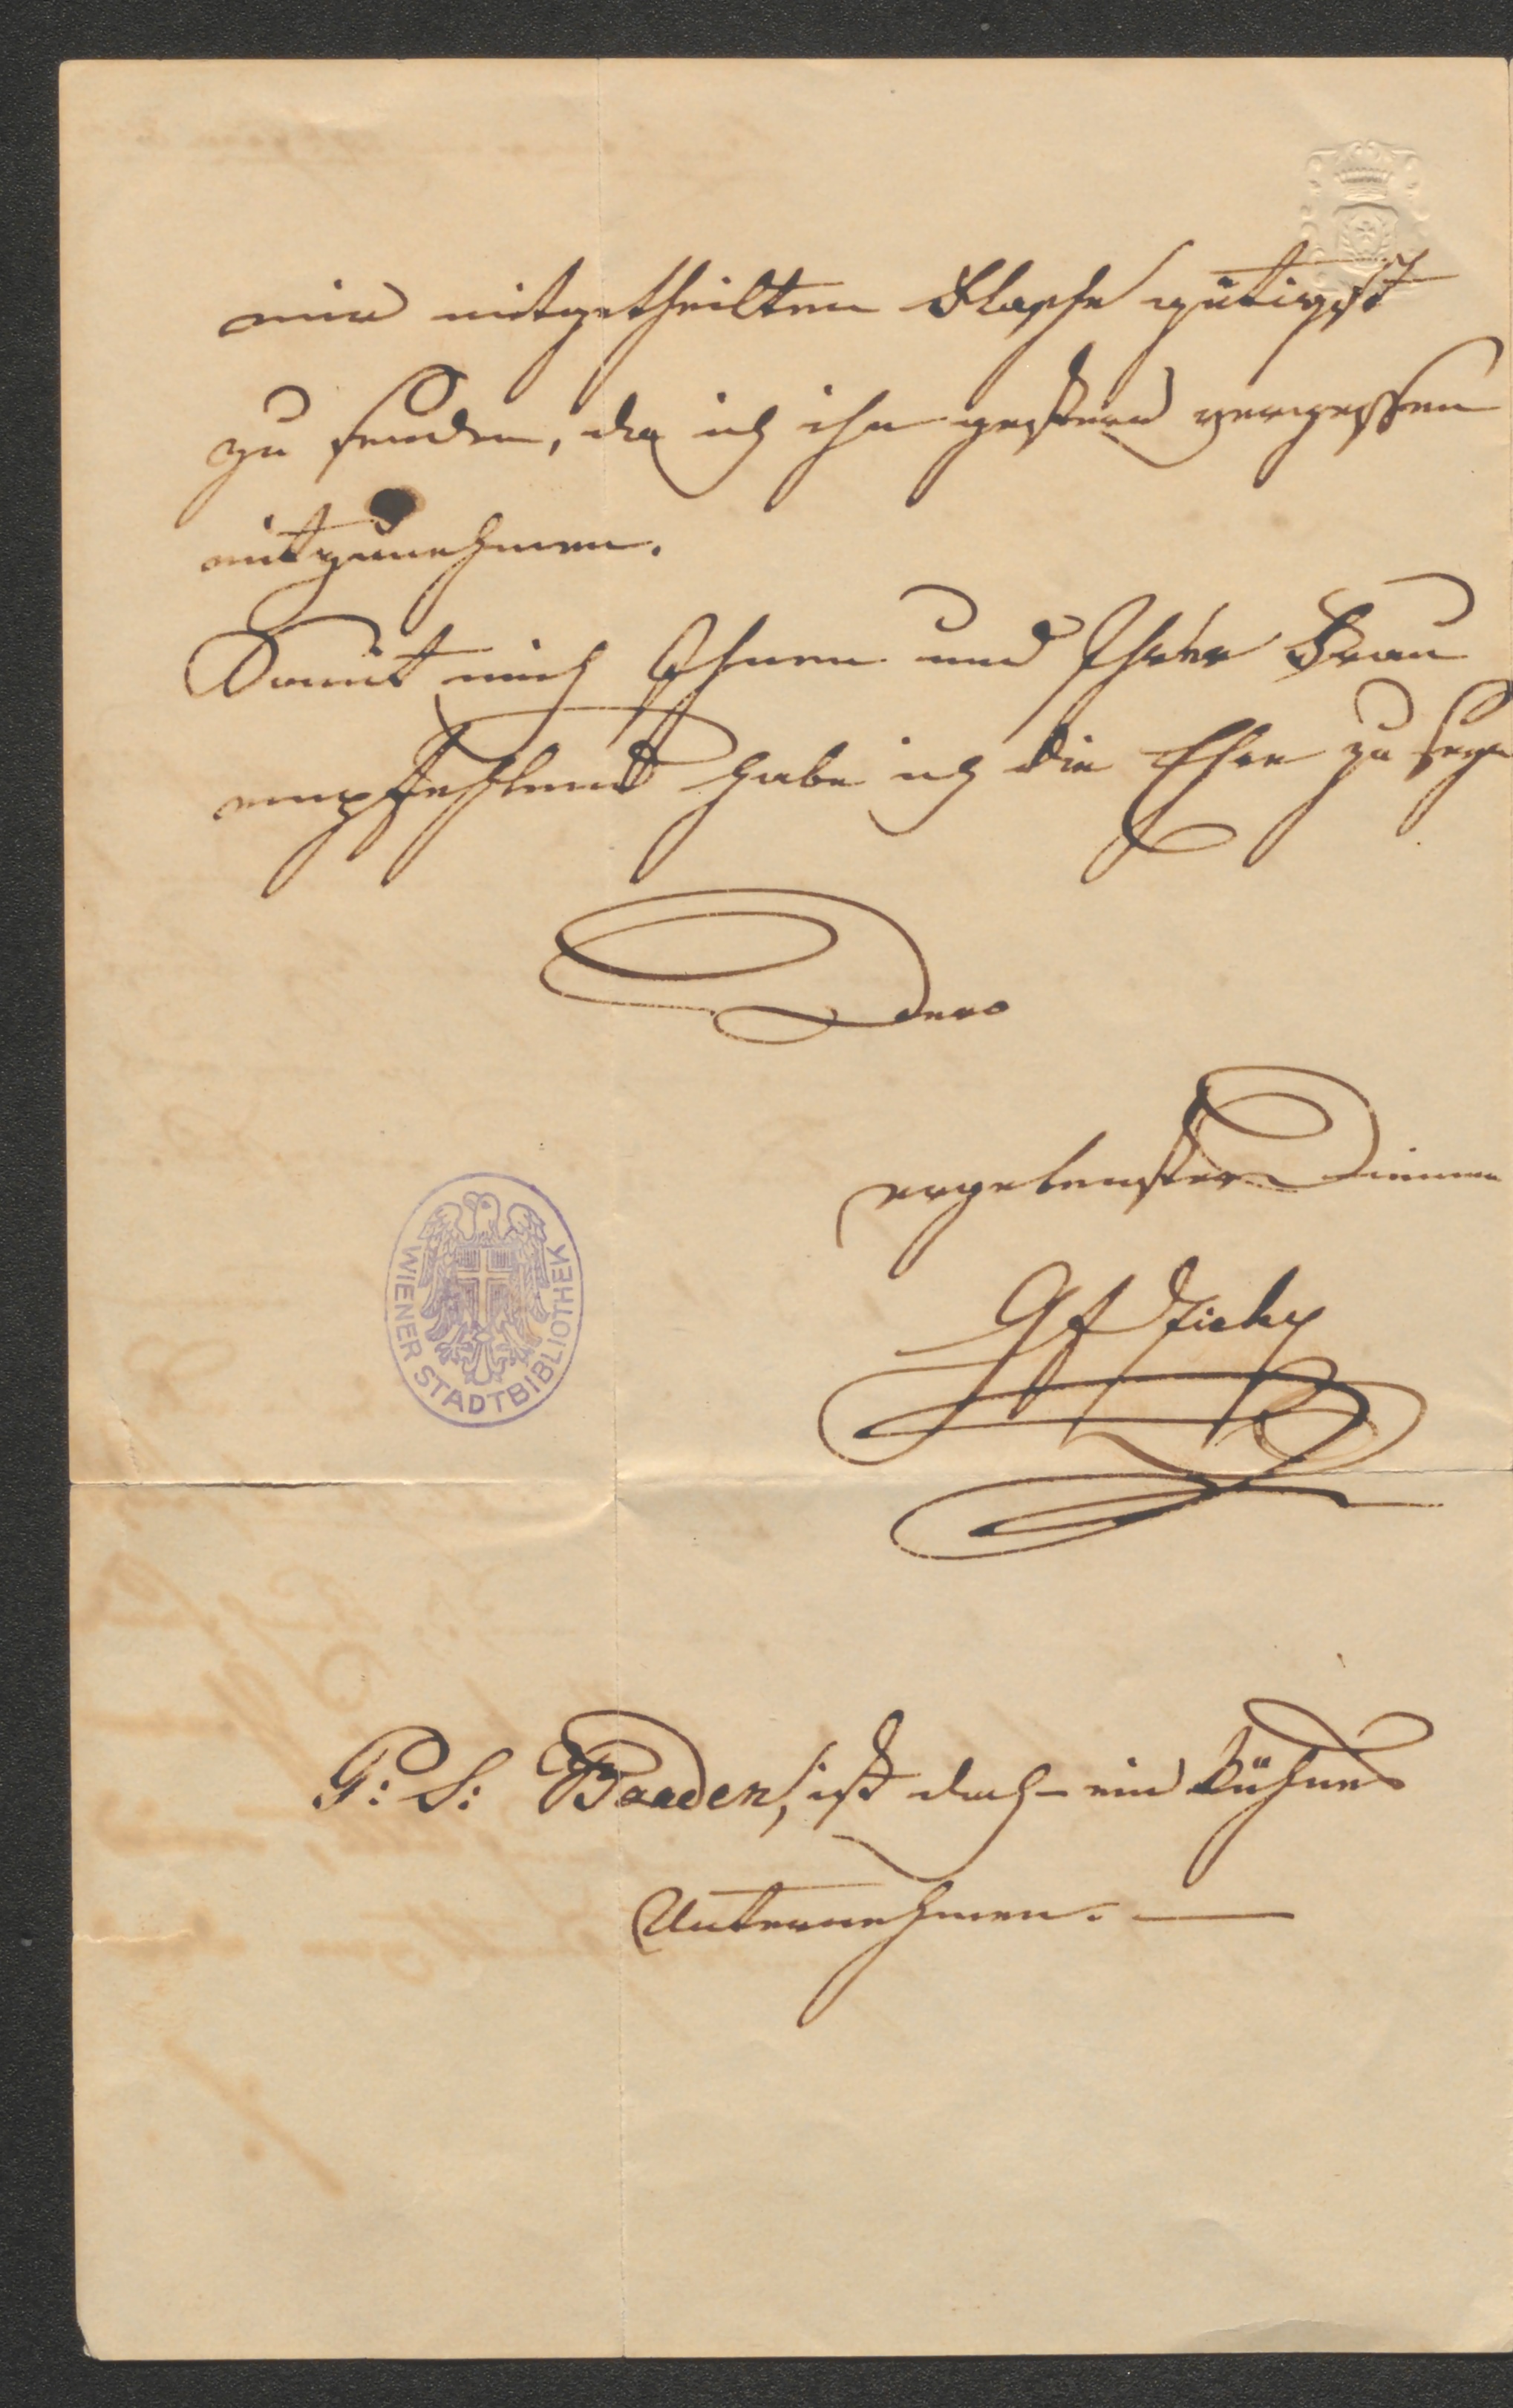 mir mitgetheilten Flasche gütigst
zu senden, da ich ihn gestern vergessen
mitzunehmen.
Damit mich Ihnen und Ihrer Frau
empfehlend habe ich die Ehre zu seyn
Dero
ergebenster Diener
Gf Zichy
WIENER STADTBIBLIOTHEK
P: S: Baaden, ist doch ein kühnes
Unternehmen. —